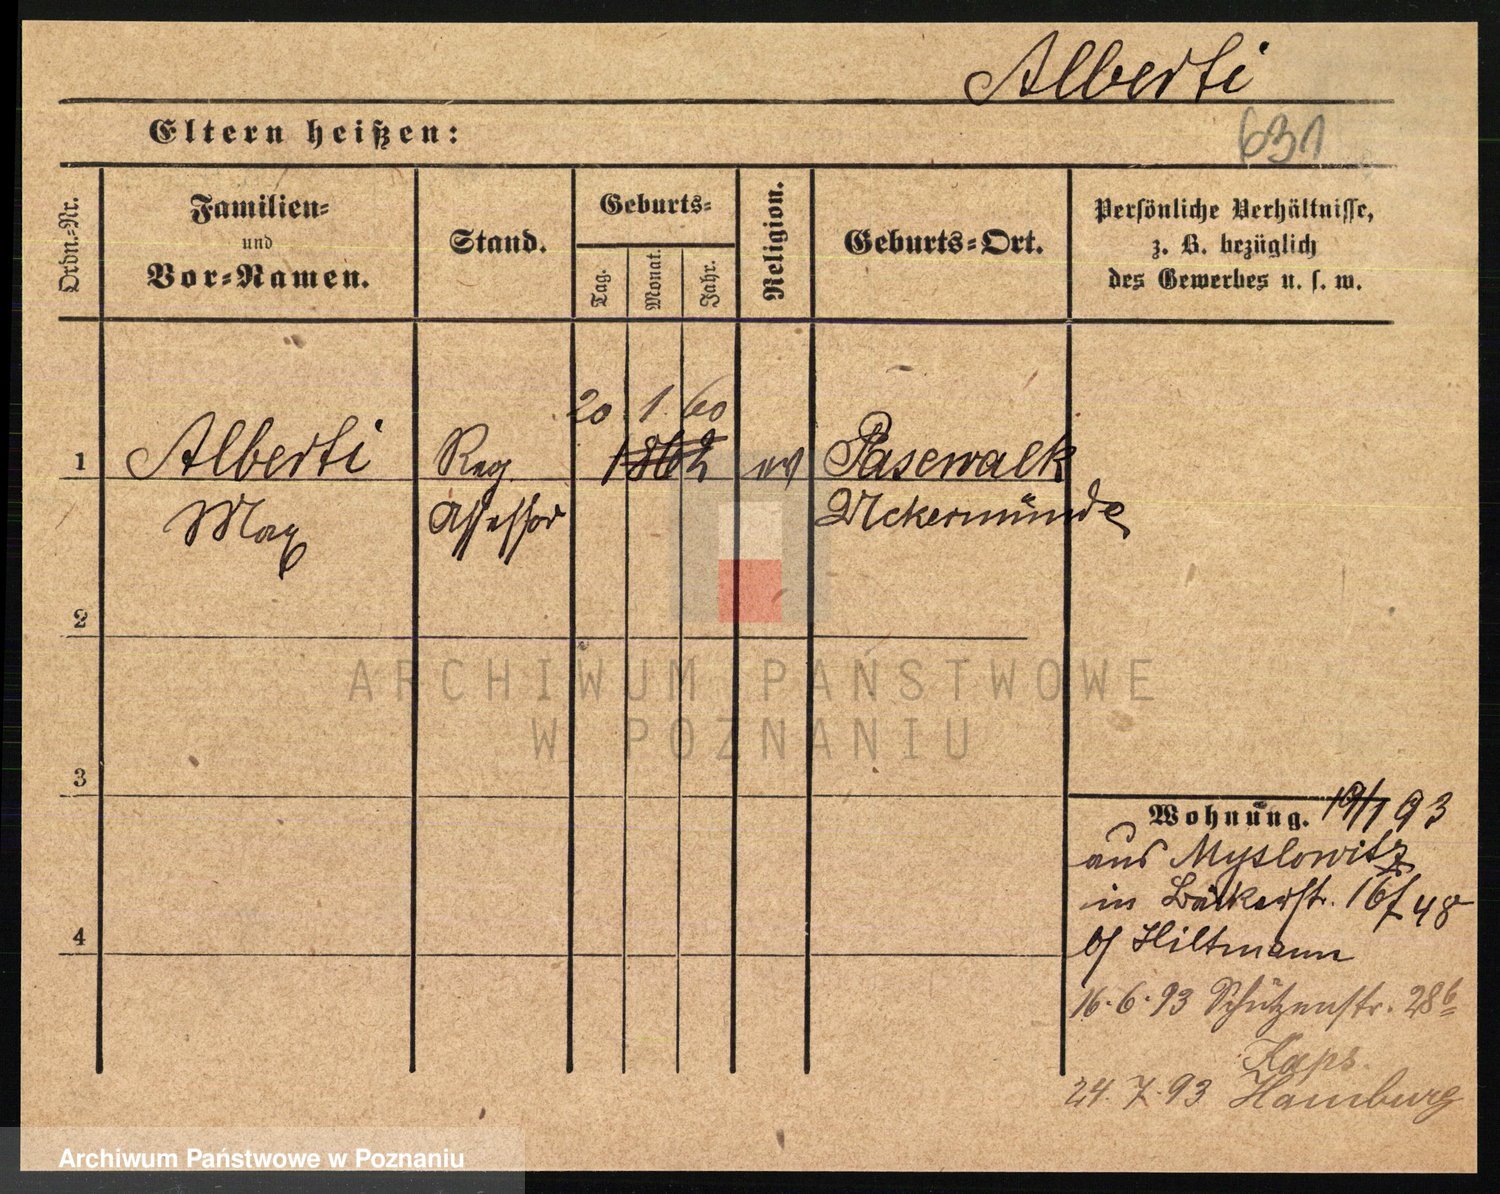 Alberti
Eltern heißen:
631
Ordn.-Nr.
Familien-
und
Vor-Namen.
Stand.
Geburts-
Tag.
Monat.
Jahr.
Religion.
Geburts-Ort.
Persönliche Verhältnisse,
z. B. bezüglich
des Gewerbes u. s. w.
20 1. 60
1 Alberti Reg. 1862 ev Pasewalk
Max Assessor Uckermünde
2
3
4
Wohnung. 19/1 93
aus Myslowitz
in Bäckerstr. 16/48
b/ Hiltmann
16.6.93 Schützenstr. 28b
Kaps.
24.7.93 Hamburg
ARCHIWUM PAŃSTWOWE
W POZNANIU
Archiwum Państwowe w Poznaniu